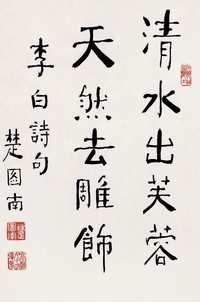 清水出芙蓉
天然去雕飾
李白詩句
楚图南